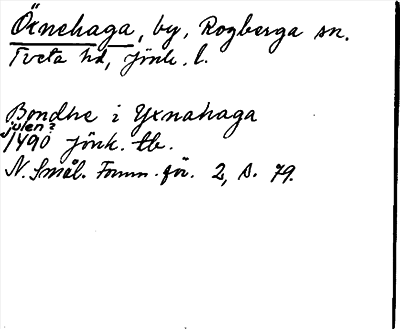 Öxnehaga, by, Rogberga sn.
Tveta hd, Jönk. l.
Bondhe i Yxnahaga
julen?
1490 Jönk. tb.
N. Smål. Fornm. för. 2, s. 79.